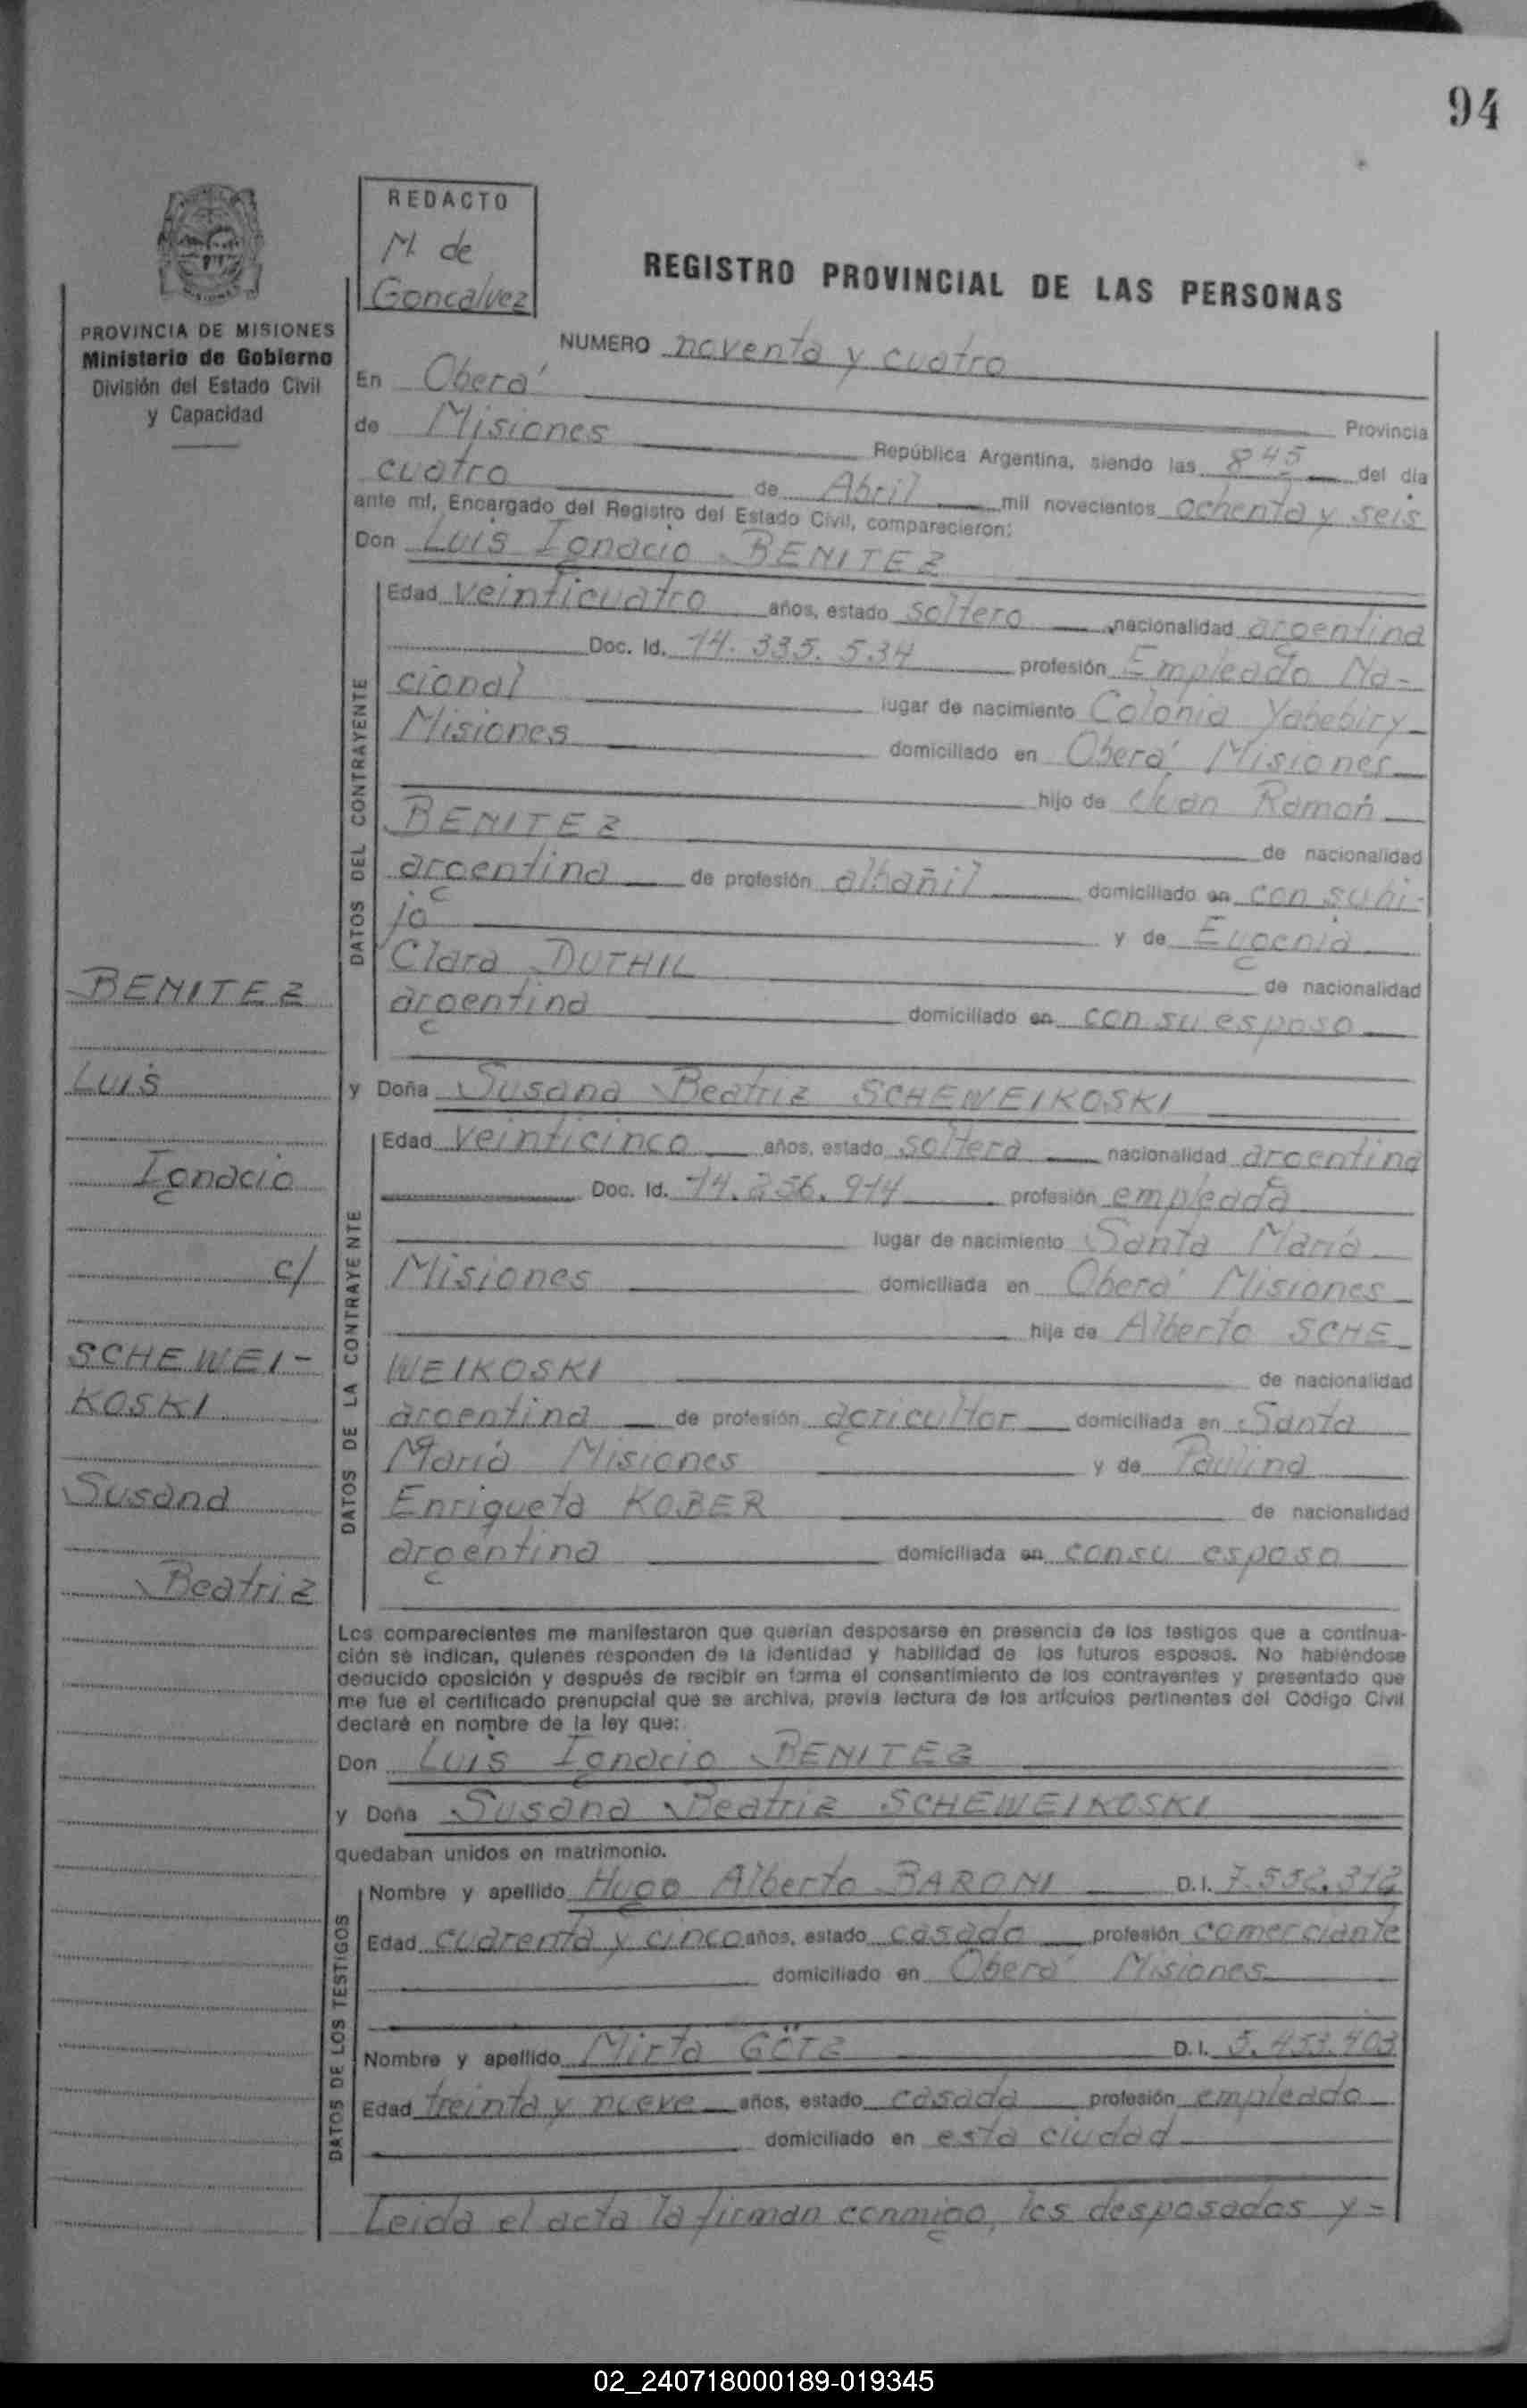 94
REDACTO
M. de
Goncalvez
REGISTRO PROVINCIAL DE LAS PERSONAS
PROVINCIA DE MISIONES
Ministerio de Gobierno
División del Estado Civil
y Capacidad
NUMERO noventa y cuatro
En Oberá
Provincia
de Misiones República Argentina, siendo las 8 45 del día
cuatro de Abril mil novecientos ochenta y seis
ante mí, Encargado del Registro del Estado Civil, comparecieron:
Don Luis Ignacio BENITEZ
DATOS DEL CONTRAYENTE
Edad veinticuatro años, estado soltero nacionalidad argentina
Doc. Id. 14.335.534 profesión Empleado Na-
cional lugar de nacimiento Colonia Yabebiry
Misiones domiciliado en Oberá Misiones
hijo de Juan Ramón
BENITEZ de nacionalidad
argentina de profesión albañil domiciliado en con su hi-
jo y de Eugenia
Clara DUTHIL de nacionalidad
argentina domiciliado en con su esposo
y Doña Susana Beatriz SCHEWEIKOSKI
DATOS DE LA CONTRAYENTE
Edad veinticinco años, estado soltera nacionalidad argentina
Doc. Id. 14.256.914 profesión empleada
lugar de nacimiento Santa María
Misiones domiciliada en Oberá Misiones
hija de Alberto SCHE
WEIKOSKI de nacionalidad
argentina de profesión agricultor domiciliada en Santa
María Misiones y de Paulina
Enriqueta KOBER de nacionalidad
argentina domiciliada en con su esposo
BENITEZ
Luis
Ignacio
c/
SCHEWEI-
KOSKI
Susana
Beatriz
Los comparecientes me manifestaron que querían desposarse en presencia de los testigos que a continua-
ción se indican, quienes responden de la identidad y habilidad de los futuros esposos. No habiéndose
deducido oposición y después de recibir en forma el consentimiento de los contrayentes y presentado que
me fue el certificado prenupcial que se archiva, previa lectura de los artículos pertinentes del Código Civil
declaré en nombre de la ley que:
Don Luis Ignacio BENITEZ
y Doña Susana Beatriz SCHEWEIKOSKI
quedaban unidos en matrimonio.
DATOS DE LOS TESTIGOS
Nombre y apellido Hugo Alberto BARONI D.I. 7.552.312
Edad cuarenta y cinco años, estado casado profesión comerciante
domiciliado en Oberá Misiones
Nombre y apellido Mirta GÖTZ D.I. 5.453.403
Edad treinta y nueve años, estado casada profesión empleado
domiciliado en esta ciudad
Leida el acta la firman conmigo, los desposados y =
02_240718000189-019345